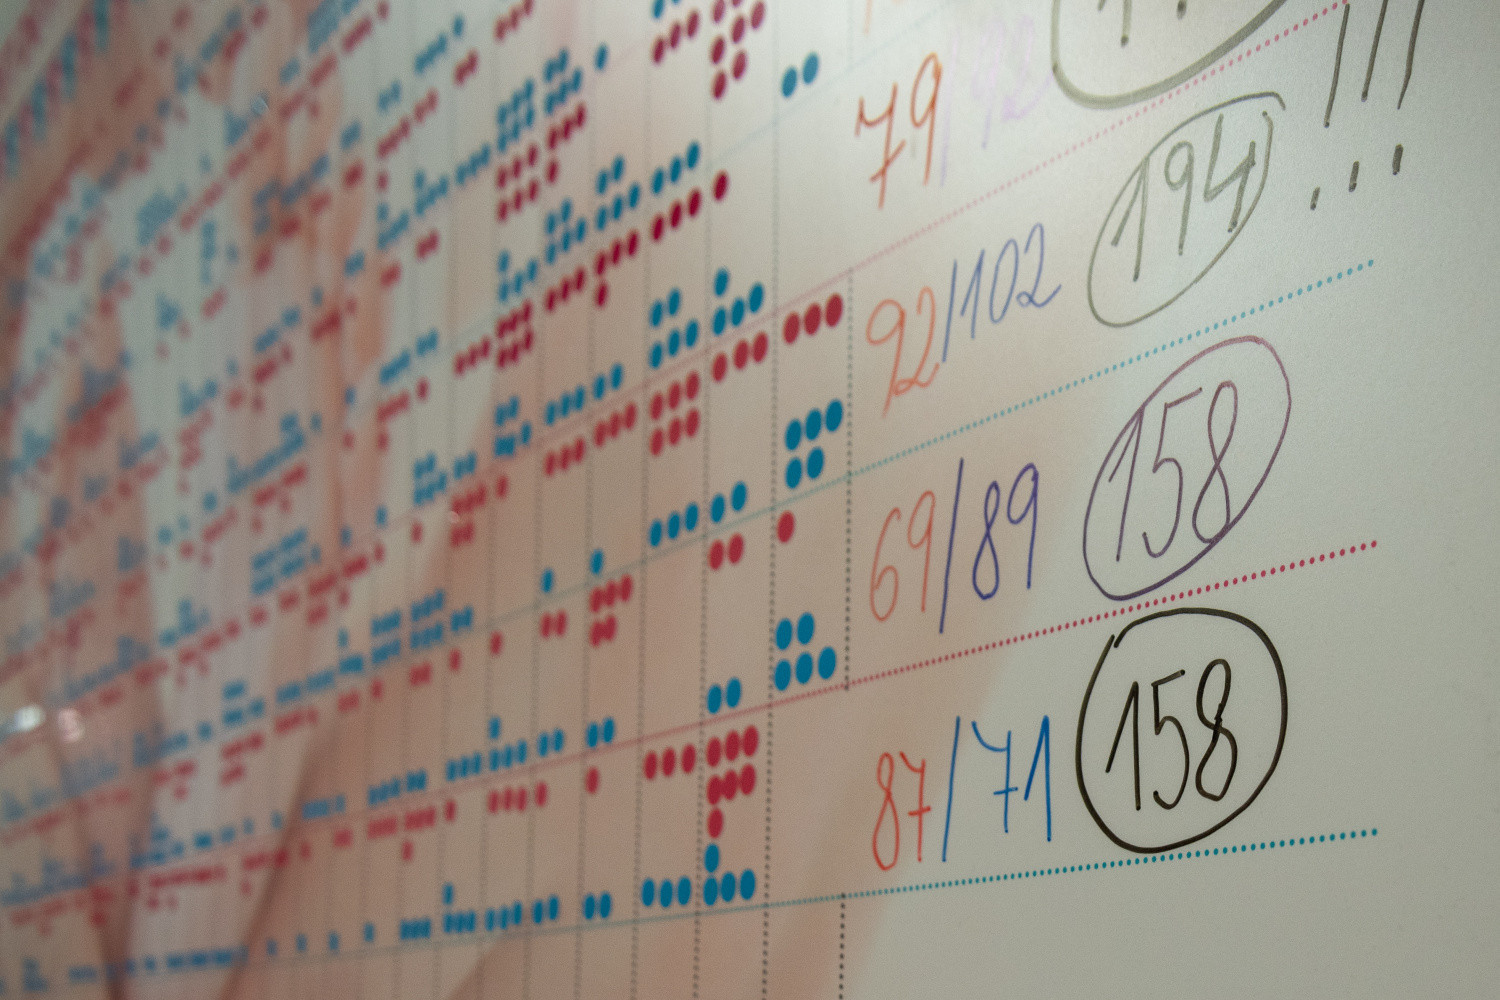 79/ !!!
92/102 194
69/89 158
87/71 158